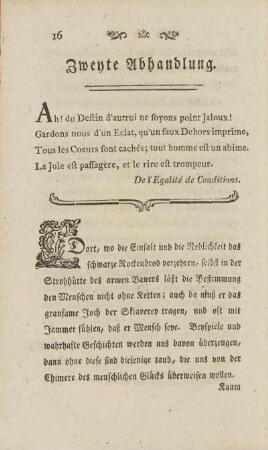 16
Zweyte Abhandlung.
Ah! du Destin d'autrui ne soyons point Jaloux!
Gardons nous d'un Eclat, qu'un faux Dehors imprime,
Tous les Coeurs sont cachés; tout homme est un abime.
La Joie est passagère, et le rire est trompeur.
De l'Egalité de Conditions.
Dort, wo die Einfalt und die Redlichkeit das
schwarze Rockenbrod verzehren, selbst in der
Strohhütte des armen Bauers läßt die Bestimmung
den Menschen nicht ohne Ketten; auch da muß er das
grausame Joch der Sklaverey tragen, und oft mit
Jammer fühlen, daß er Mensch seye. Beyspiele und
wahrhafte Geschichten werden uns davon überzeugen,
dann ohne diese sind diejenige taub, die uns von der
Chimere des menschlichen Glücks überweisen wollen.
Kaum